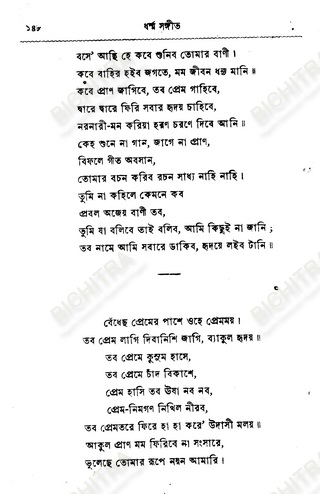 ১৪৮
ধর্ম্ম সঙ্গীত
বসে' আছি হে কবে শুনিব তোমার বাণী।
কবে বাহির হইব জগতে, মম জীবন ধন্য মানি॥
কবে প্রাণ জাগিবে, তব প্রেম গাহিবে,
দ্বারে দ্বারে ফিরি সবার হৃদয় চাহিবে,
নরনারী-মন করিয়া হরণ চরণে দিবে আনি॥
কেহ শুনে না গান, জাগে না প্রাণ,
বিফলে গীত অবসান,
তোমার বচন করিব রচন সাধ্য নাহি নাহি।
তুমি না কহিলে কেমনে কব
প্রবল অজেয় বাণী তব,
তুমি যা বলিবে তাই বলিব, আমি কিছুই না জানি;
তব নামে আমি সবারে ডাকিব, হৃদয়ে লইব টানি॥
বেঁধেছ প্রেমের পাশে ওহে প্রেমময়।
তব প্রেম লাগি দিবানিশি জাগি, ব্যাকুল হৃদয়॥
তব প্রেমে কুসুম হাসে,
তব প্রেমে চাঁদ বিকাশে,
প্রেম হাসি তব ঊষা নব নব,
প্রেম-নিমগণ নিখিল নীরব,
তব প্রেমতরে ফিরে হা হা করে' উদাসী মলয়॥
আকুল প্রাণ মম ফিরিবে না সংসারে,
ভুলেছে তোমার রূপে নয়ন আমারি।
BICHITRA